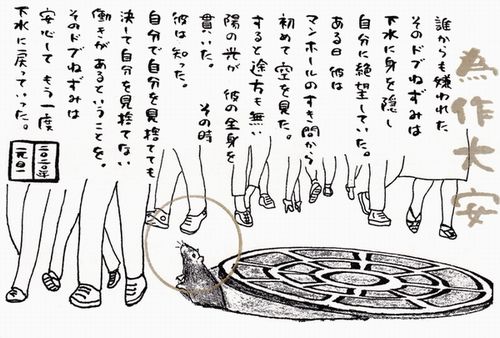 為作大安
誰からも嫌われた
そのドブねずみは
下水に身を隠し
自分に絶望していた。
ある日 彼は
マンホールのすき間から
初めて空を見た。
すると途方も無い
陽の光が 彼の全身を
貫いた。 その時
彼は知った。
自分で自分を見捨てても
決して自分を見捨てない
働きがあるということを。
そのドブねずみは
安心して もう一度
下水に戻っていった。
二〇二〇年
元旦